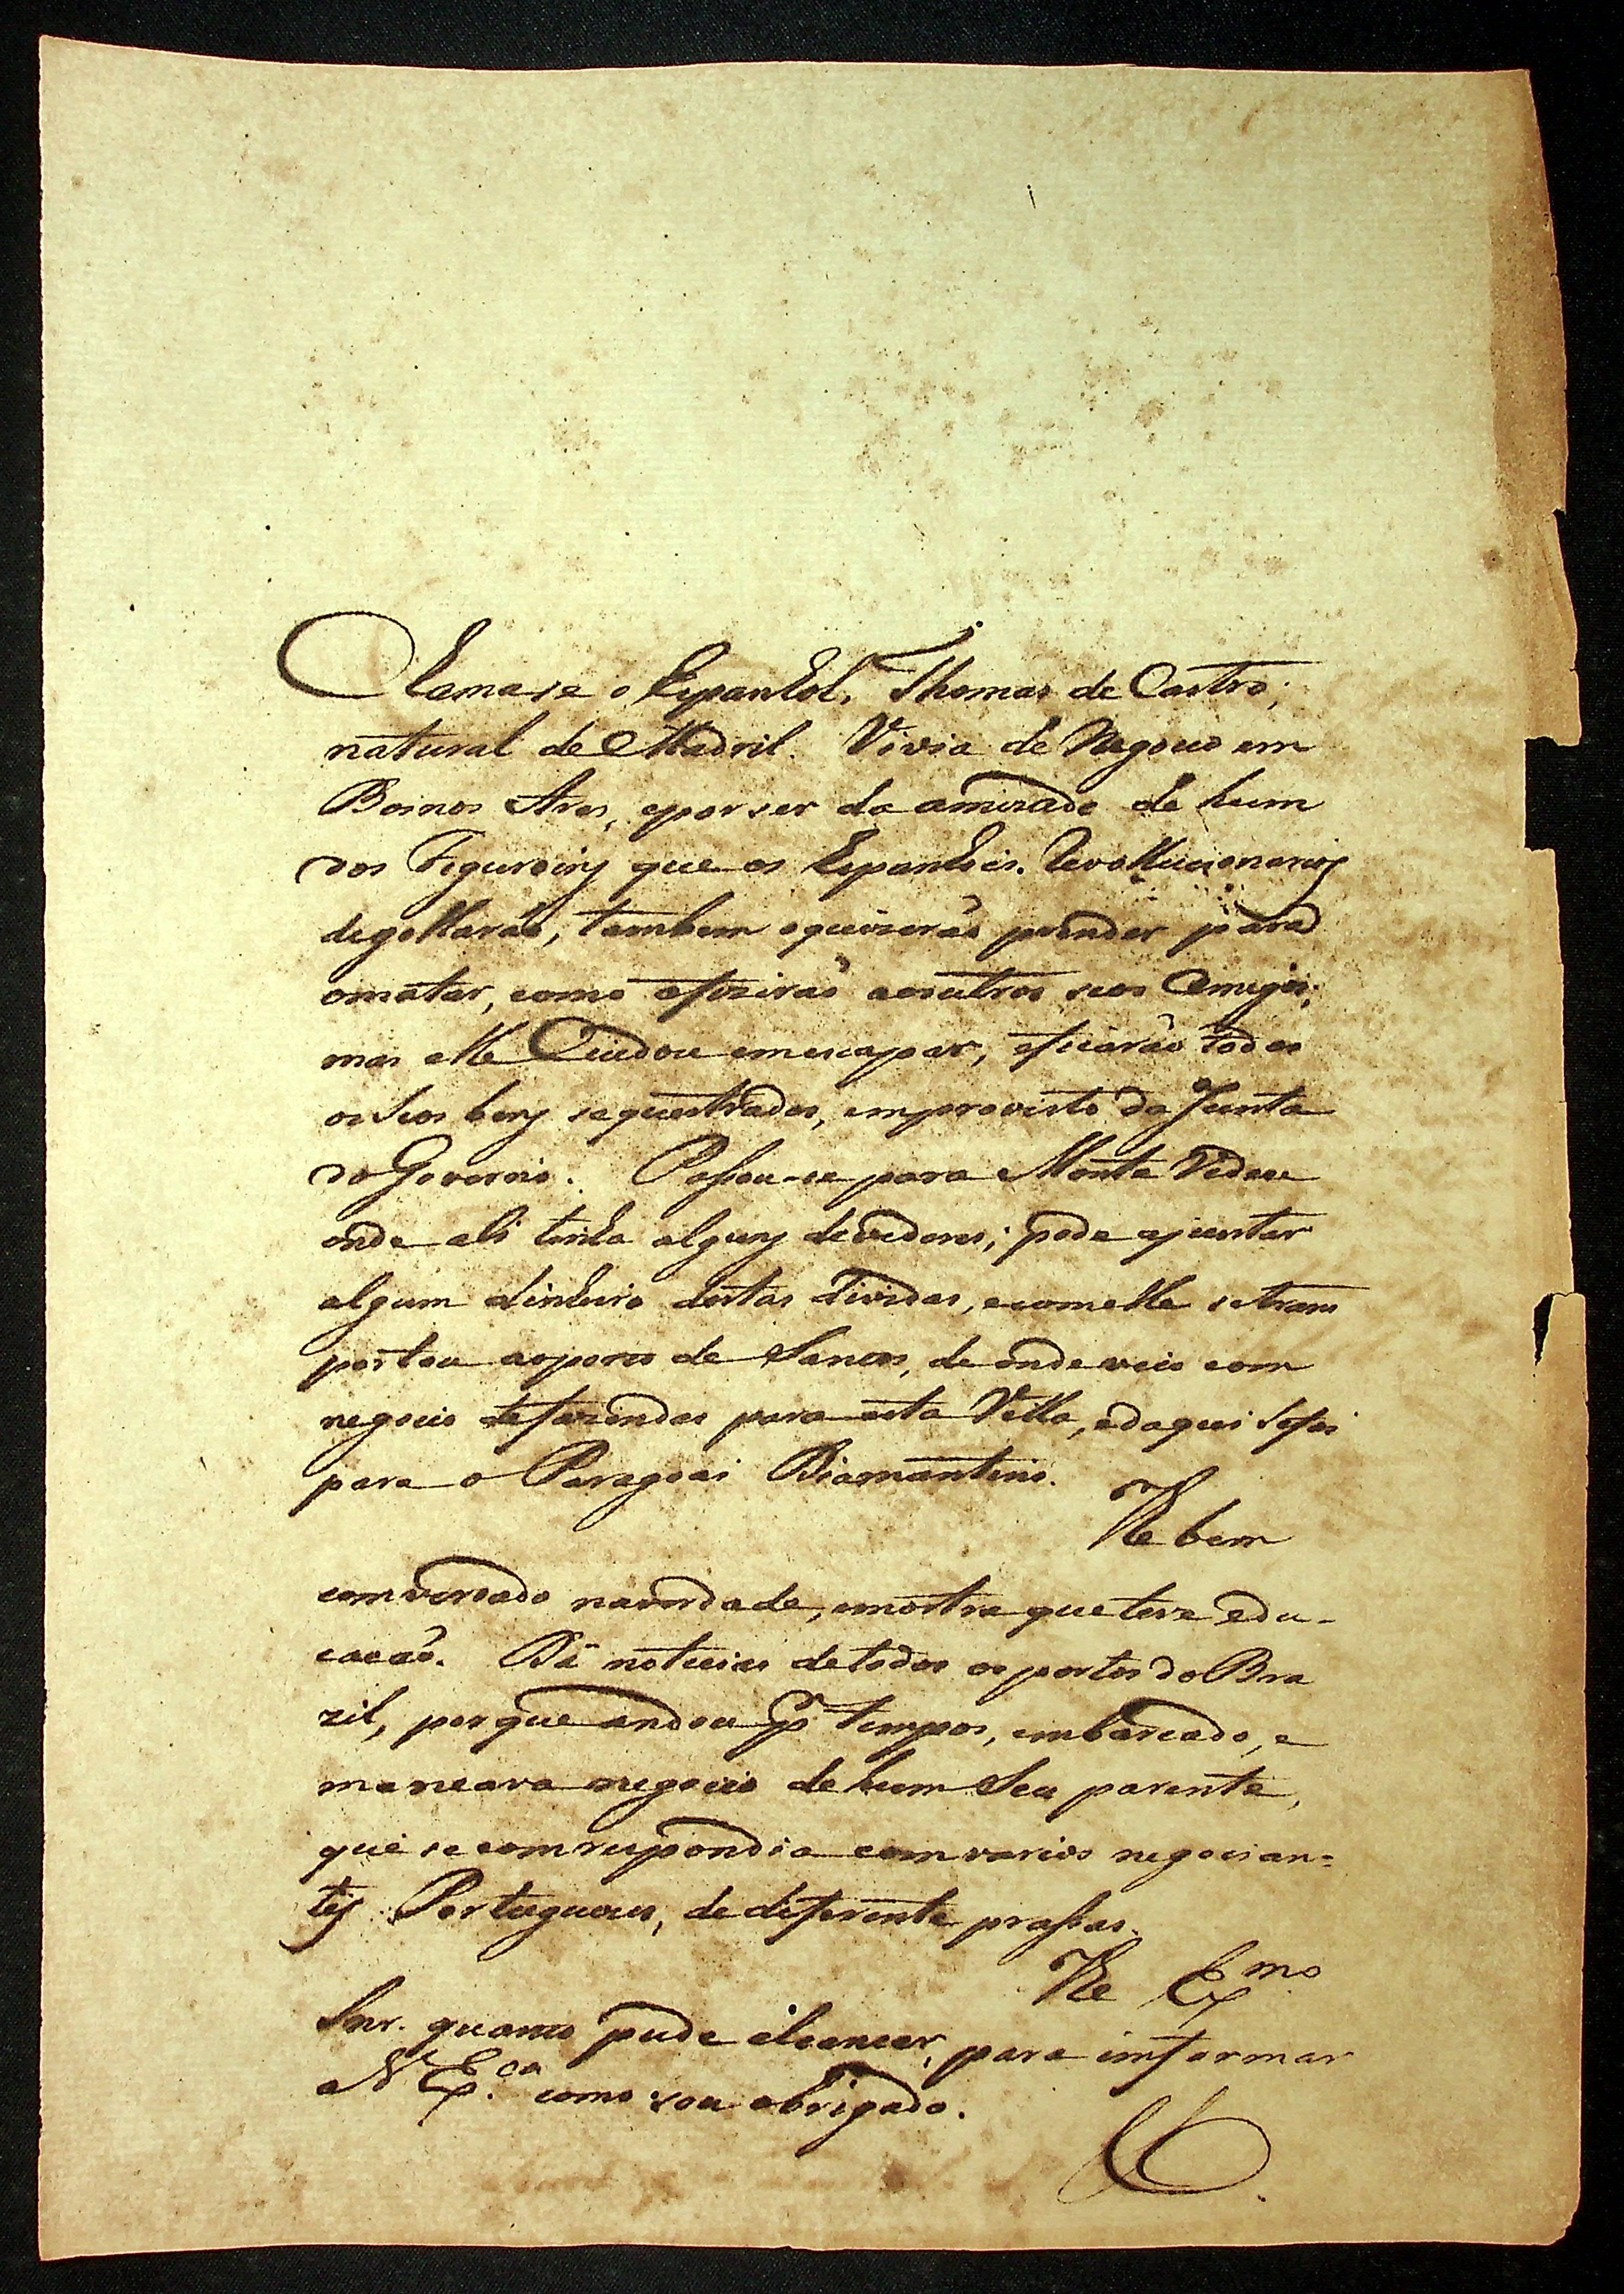 Chamase o Espanhol, Thomas de Castro,
natural de Madril. Vivia de Negocio em
Boinos Ares, epor ser da amizade de hum
dos Figuroins que os Espanhois. Revollucionarios
degollarão, tambem oquizerão prender para
omatar, como ofizerão aosoutros seos Amigos;
mas elle Cuidou emescapar, eficarão todos
os Seos bens sequestrados, emproveito da Junta
do Governo. Passou-se para Monte Videu
onde ali tinha alguns devedores; pode ajuntar
algum dinheiro destas dividas, ecomelle setrans
portou aoporto de Santos, de ondeveio com
negocio defazendas para esta Villa, edaqui Sefoi
para o Paragoai Diamantino.
He bem
comversado naverdade, emostra queteve edu-
cacão. Dá noticias detodos os portos do Bra
zil, porque andou tempos, embarcado, e
maneava negocio de hum Seu parente,
que se comrespondia com varios negocian=
tes Portuguezes, de diferente prassas.
He Exmo.
Snr. quanto pude alcancar, para imformar
a V Exca. como sou obrigado.